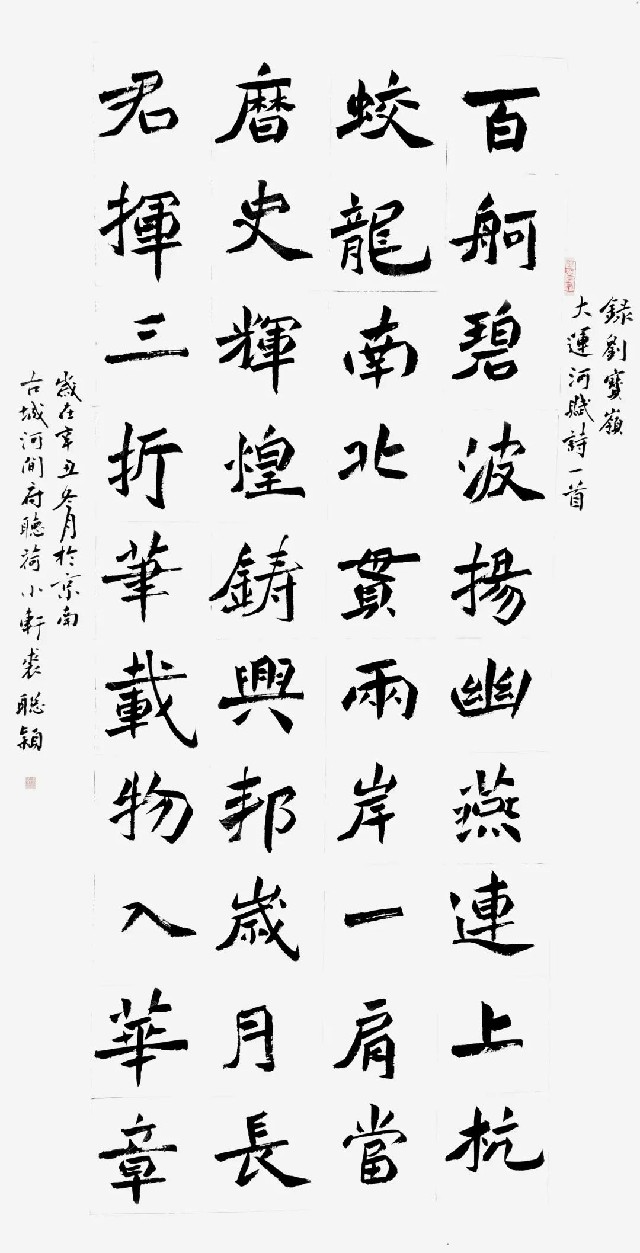 録劉寶嶺
大運河賦詩一首
百舸碧波揚幽燕連上杭
蛟龍南北貫兩岸一肩當
曆史輝煌鑄興邦歲月長
君揮三折筆載物入華章
歲在辛丑冬月於京南
古城河間府聽荷小軒裘聰穎